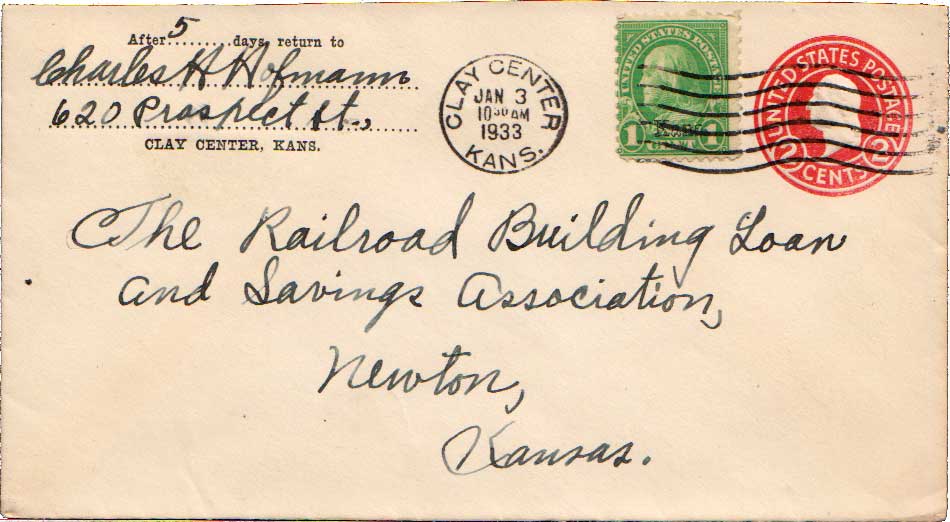 After 5 days, return to
Charles H Hofmann
620 Prospect St.,
CLAY CENTER, KANS.
CLAY CENTER
JAN 3
10 30 AM
1933
KANS.
UNITED STATES POSTAGE
Kans.
1 CENT 1
UNITED STATES POSTAGE
2 CENTS 2
The Railroad Building Loan
and Savings Association,
Newton,
Kansas.